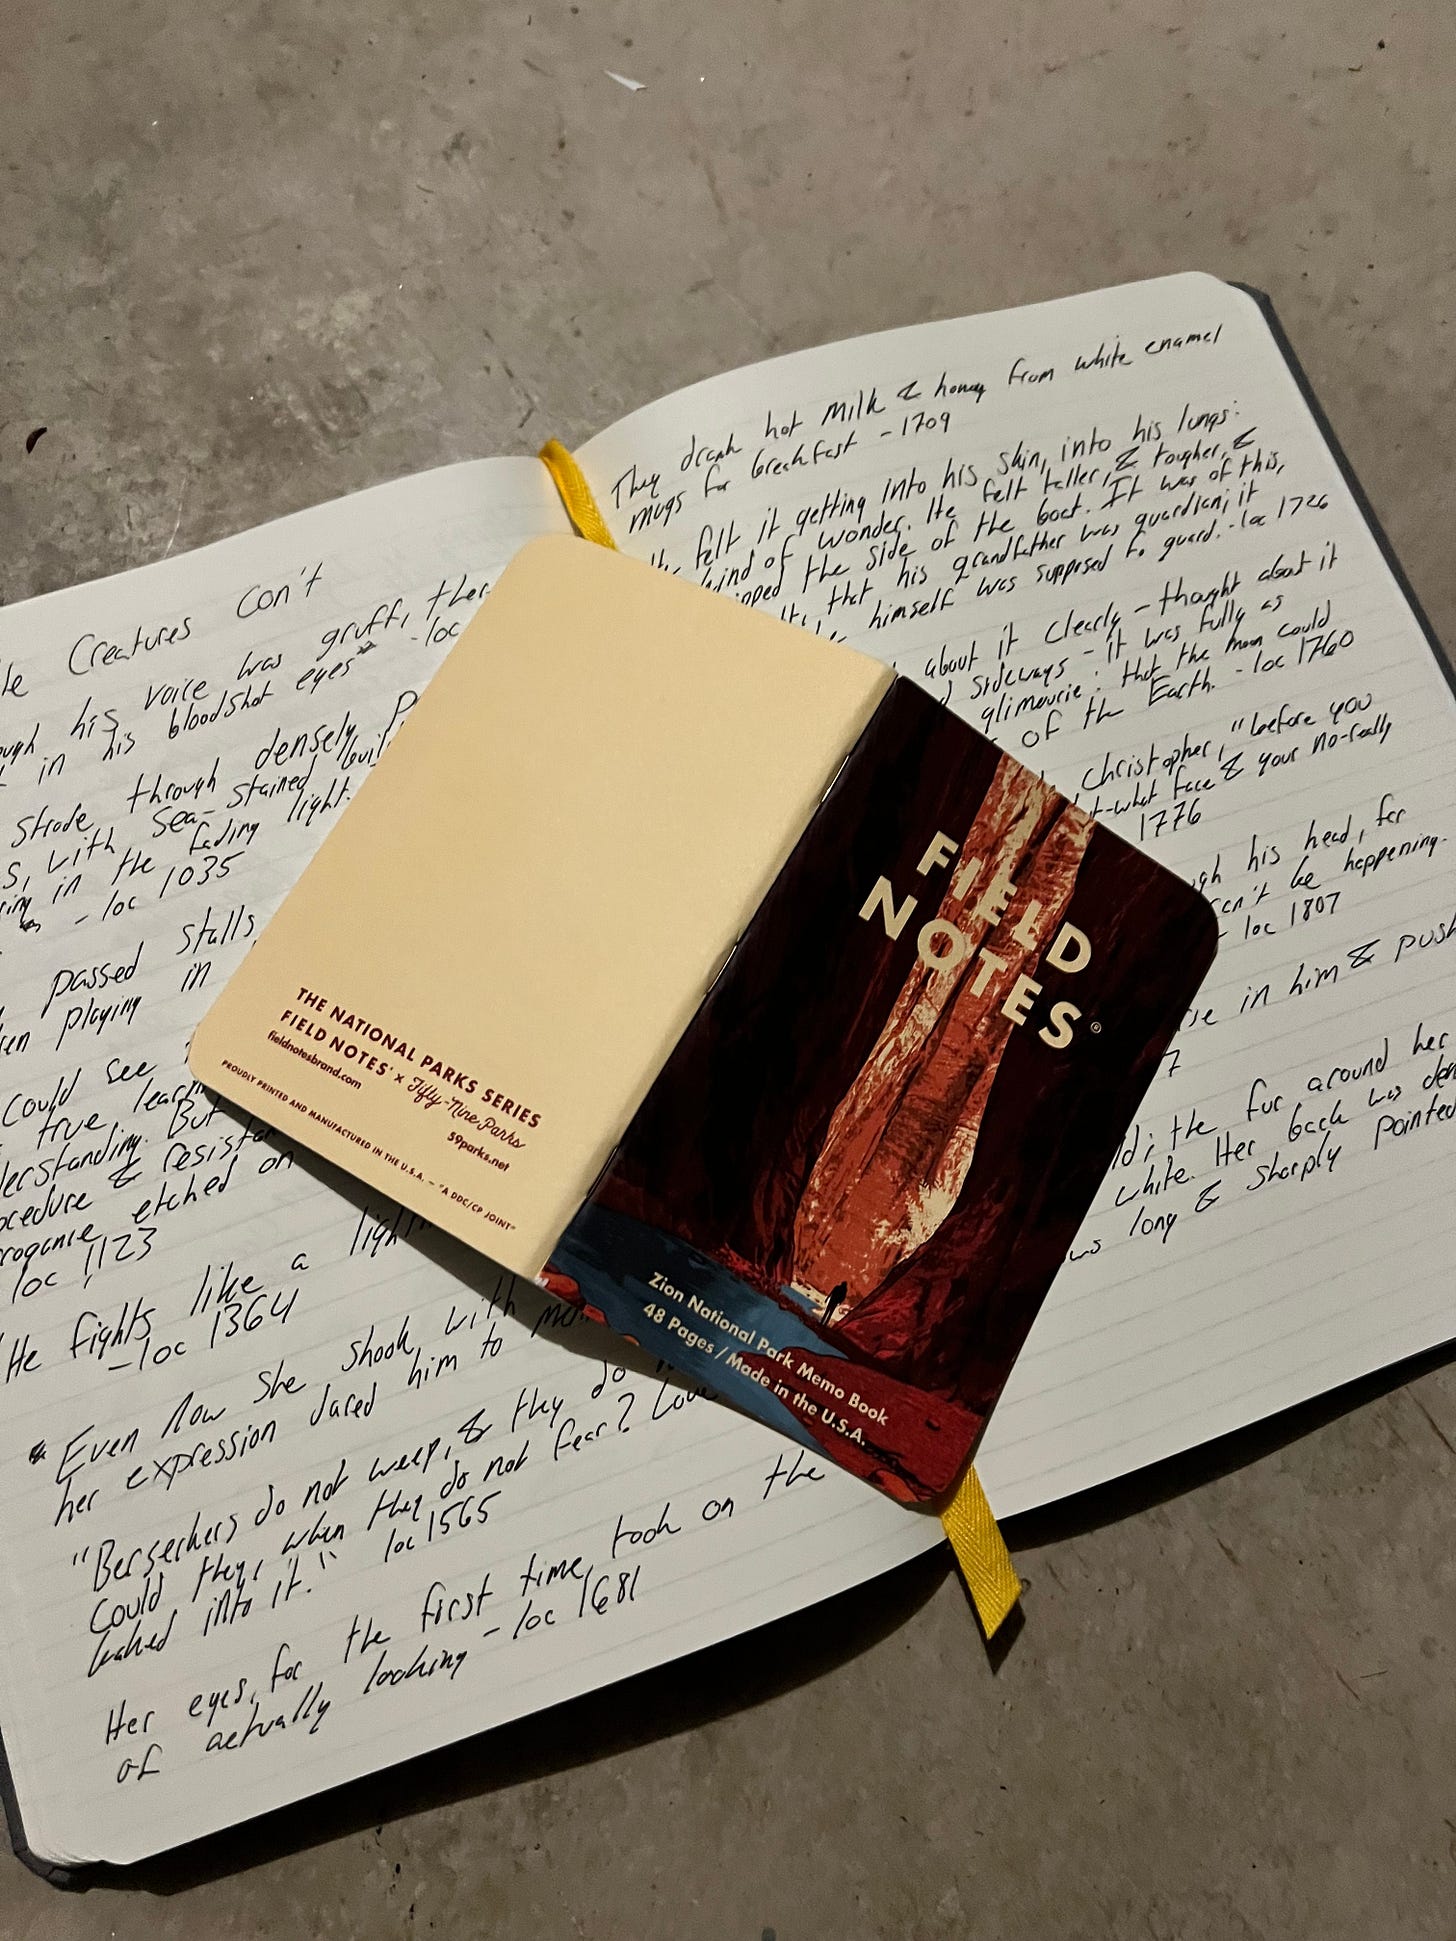 Creatures Con't
his voice was gruff, ther
in his bloodshot eyes" -loc
strode through densely
s, with sea-stained
in the fading light.
- loc 1035
passed stalls,
playing in
could see
true
derstanding. But
& resistan
etched on
loc 1123
He fights like a
-loc 1364
Even now she shook with
her expression dared him to
"Berserkers do not weep, & they do
Could they, when they do not fear? Love
baked into it." loc 1565
Her eyes, for the first time, took on the
of actually looking - loc 1681
They drank hot milk & honey from white enamel
mugs for breakfast - 1709
felt it getting into his skin, into his lungs:
kind of wonder. He felt taller, & tougher, &
the side of the boat. It was of this,
that his grandfather was guardian; it
himself was supposed to guard. -loc 1726
about it clearly - thought about it
sideways - it was fully as
glimourie: that the moon could
of the Earth. - loc 1760
Christopher, "before you
t-what face & your no-really
1776
his head, for
can't be happening.
- loc 1807
in him & push
7
the fur around her
white. Her back was
long & sharply pointed
THE NATIONAL PARKS SERIES
FIELD NOTES® x Fifty-Nine Parks
fieldnotesbrand.com 59parks.net
PROUDLY PRINTED AND MANUFACTURED IN THE U.S.A. — "A DDC/CP JOINT"
FIELD
NOTES®
Zion National Park Memo Book
48 Pages / Made in the U.S.A.